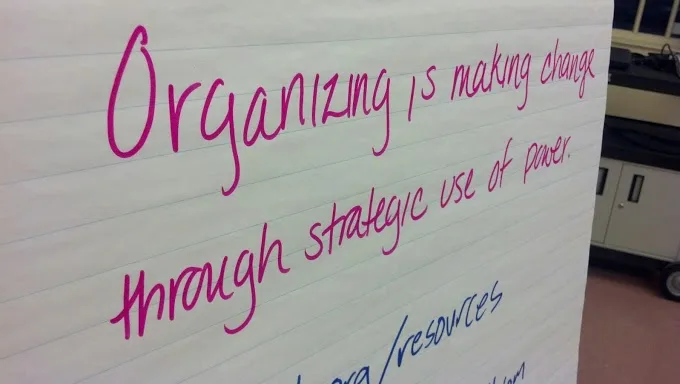 Organizing is making change
through strategic use of power.
org/resources